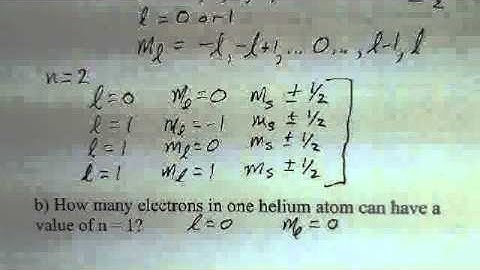 l = 0 or 1
m_l = -l, -l+1, ... 0 ..., l-1, l
n = 2
l = 0 m_l = 0 m_s ± 1/2
l = 1 m_l = -1 m_s ± 1/2
l = 1 m_l = 0 m_s ± 1/2
l = 1 m_l = 1 m_s ± 1/2
b) How many electrons in one helium atom can have a
value of n = 1? l = 0 m_l = 0